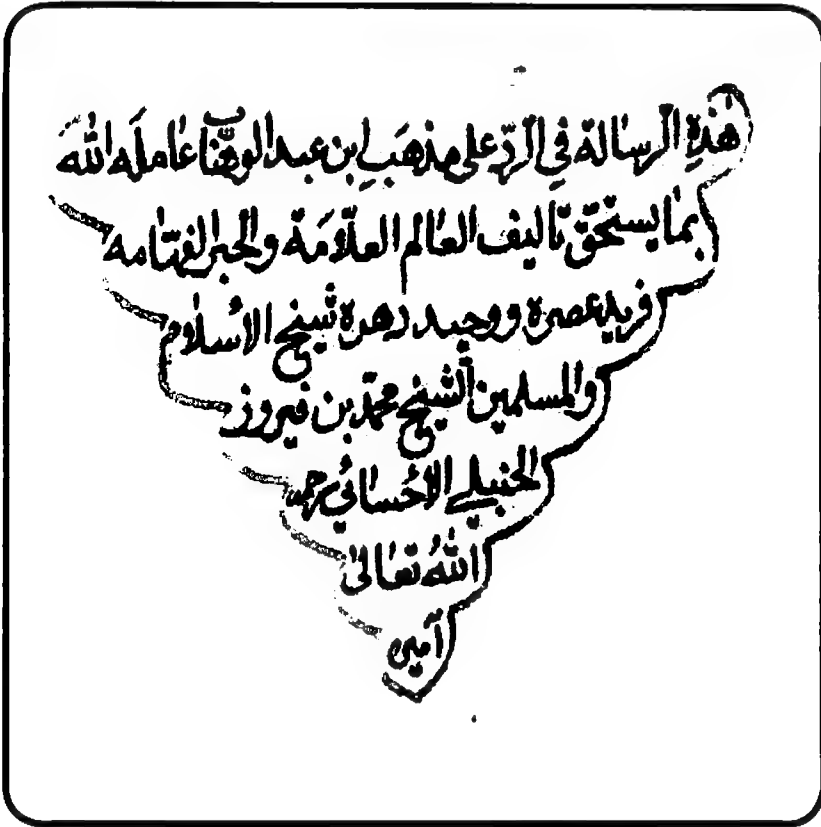 هٰذِهِ الرسالة في الرّد على مذهَبِ ابن عبد الوهّاب عامله الله
بما يستحقّ تأليف العالم العلّامَة والحبر الفهّامه
فريد عصره ووحيد دهره شيخ الاسلام
والمسلمين الشيخ محمّد بن فيروز
الحنبلي الاحسائي رحمه
اللهُ تعالى
آمين